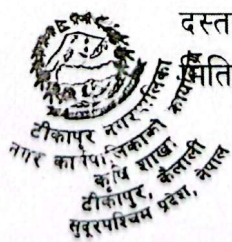 दस्त
मिति
टीकापुर नगरपालिका
नगर कार्यपालिकाको कार्यालय
कृषि शाखा,
टीकापुर, कैलाली
सुदूरपश्चिम प्रदेश, नेपाल